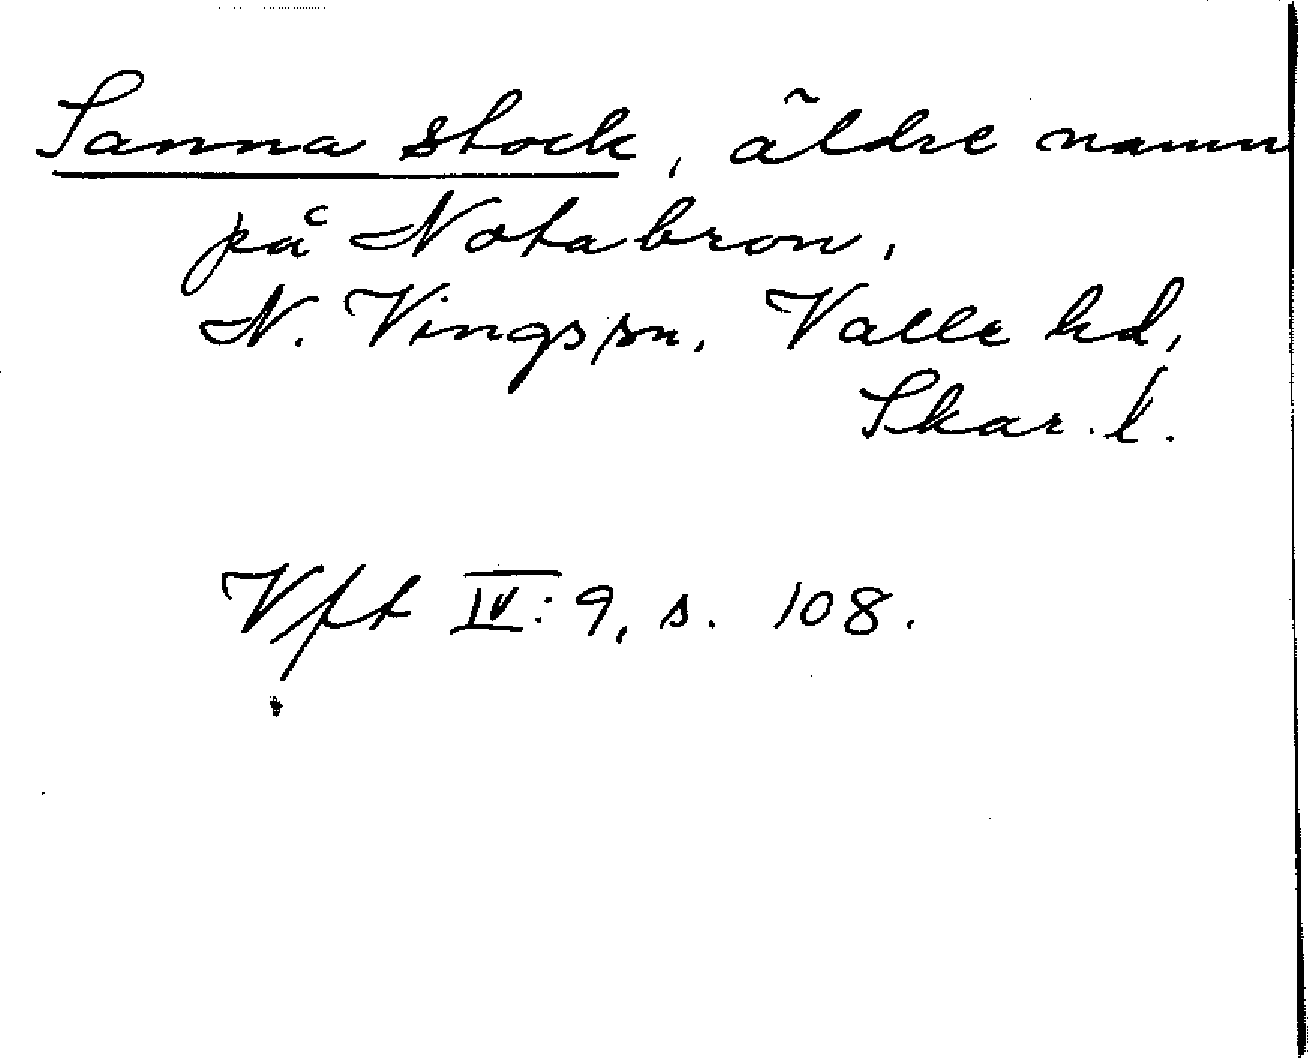 Sanna stock, äldre namn
på Notabron,
N. Vings sn, Valle hd,
Skar. l.
Vft IV: 9, s. 108.